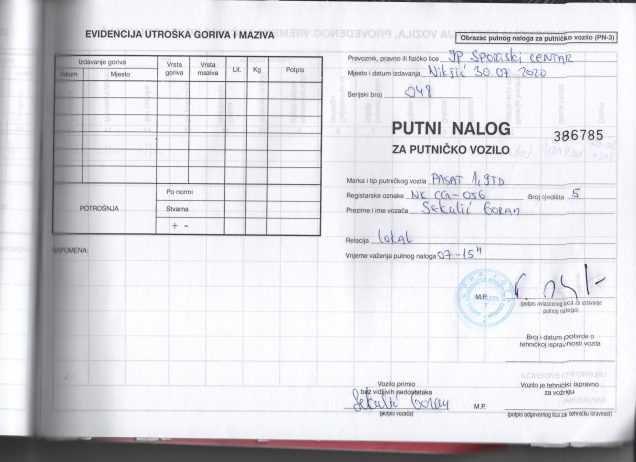 EVIDENCIJA UTROŠKA GORIVA I MAZIVA
Izdavanje goriva
Datum Mjesto
Vrsta goriva
Vrsta maziva
Lit.
Kg
Potpis
POTROŠNJA
Po normi
Stvarna
+ -
NAPOMENA:
Obrazac putnog naloga za putničko vozilo (PN-3)
Prevoznik, pravno ili fizičko lice JP SPORTSKI CENTAR
Mjesto i datum izdavanja Nikšić 30 07. 2020
Serijski broj 048
PUTNI NALOG
386785
ZA PUTNIČKO VOZILO
Marka i tip putničkog vozila PASAT 1,9TD
Registarske oznake NK CG-056 Broj sjedišta 5
Prezime i ime vozača Sekulić Goran
Relacija Lokal
Vrijeme važenja putnog naloga 07-15h
M.P.
(potpis ovlašćenog lica za izdavanje
putnog naloga)
Broj i datum potvrde o
tehničkoj ispravnosti vozila
Vozilo primio
bez vidljivih nedostataka
Sekulić Goran
(potpis vozača)
Vozilo je tehnički ispravno
za vožnju
M.P.
(potpis odgovornog lica za tehničku ispravnost)